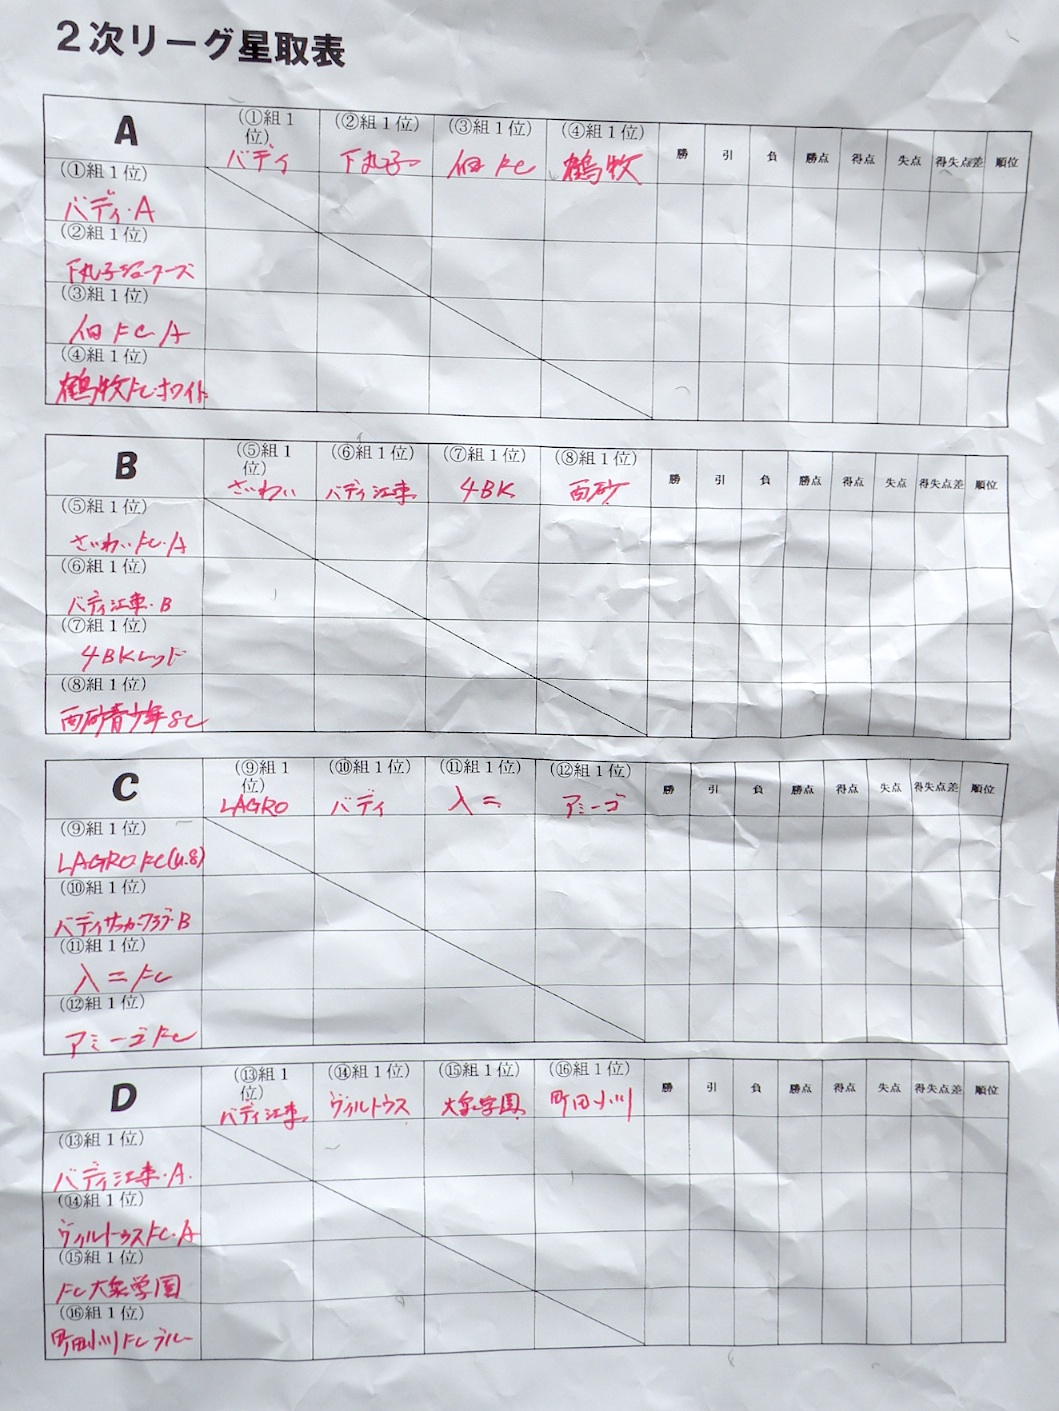 2次リーグ星取表
A (①組1位) (②組1位) (③組1位) (④組1位) 勝 引 負 勝点 得点 失点 得失点差 順位
バディ 下丸子 FC 鶴牧
(①組1位)
バディ・A
(②組1位)
下丸子ジョーカーズ
(③組1位)
FC A
(④組1位)
鶴牧FC・ホワイト
B (⑤組1位) (⑥組1位) (⑦組1位) (⑧組1位) 勝 引 負 勝点 得点 失点 得失点差 順位
さいわい バディ江東 4BK 西砂
(⑤組1位)
さいわいFC・A
(⑥組1位)
バディ江東・B
(⑦組1位)
4BKレッド
(⑧組1位)
西砂青少年SC
C (⑨組1位) (⑩組1位) (⑪組1位) (⑫組1位) 勝 引 負 勝点 得点 失点 得失点差 順位
LAGRO バディ 入二 アミーゴ
(⑨組1位)
LAGRO FC(U.8)
(⑩組1位)
バディサッカークラブ・B
(⑪組1位)
入二FC
(⑫組1位)
アミーゴFC
D (⑬組1位) (⑭組1位) (⑮組1位) (⑯組1位) 勝 引 負 勝点 得点 失点 得失点差 順位
バディ江東 ヴィルトウス 大泉学園 町田小川
(⑬組1位)
バディ江東・A
(⑭組1位)
ヴィルトゥスFC・A
(⑮組1位)
FC大泉学園
(⑯組1位)
町田小川FCブルー